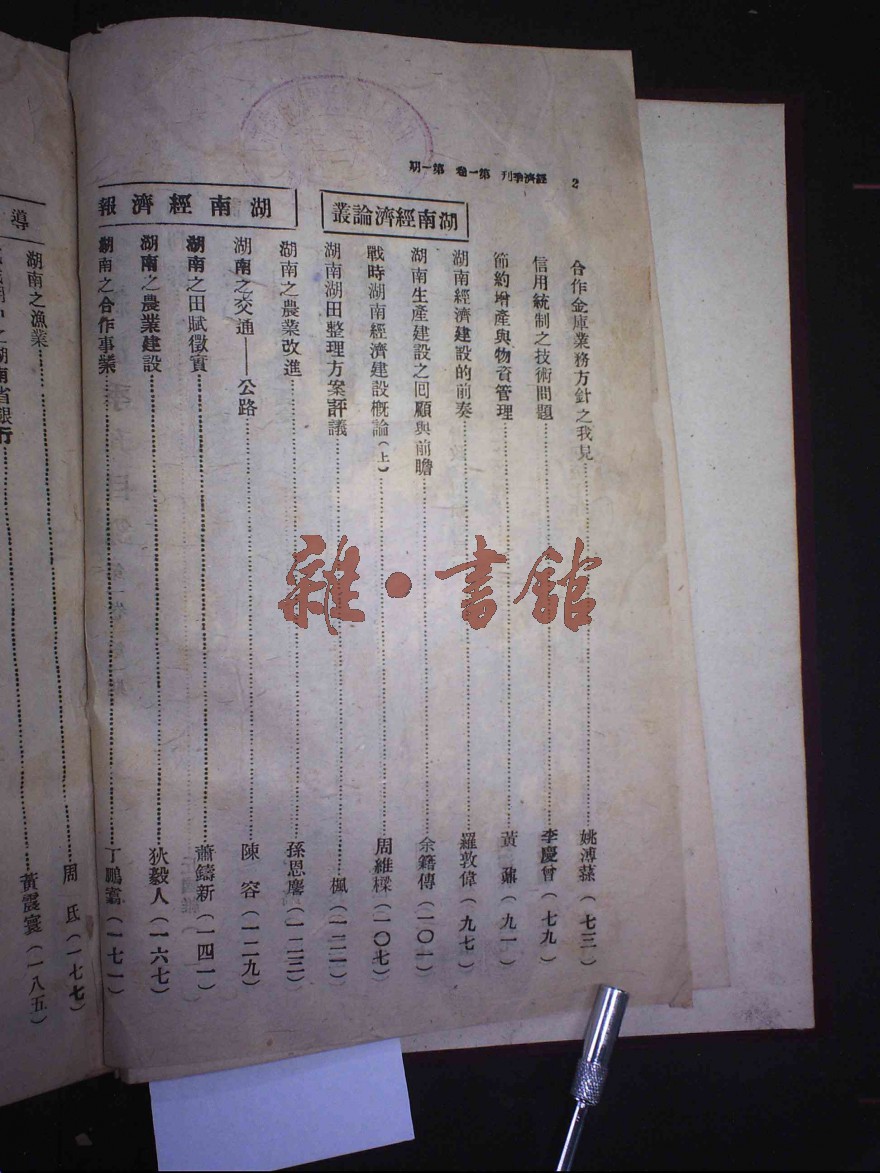 2　經濟季刊 第一卷 第一期
合作金庫業務方針之我見……姚溥蓀（七三）
信用統制之技術問題……李慶曾（七九）
節約增產與物資管理……黃　鼐（九一）
湖南經濟論叢
湖南經濟建設的前奏……羅敦偉（九七）
湖南生產建設之回顧與前瞻……余籍傳（一〇一）
戰時湖南經濟建設概論（上）……周維樑（一〇七）
湖南湖田整理方案評議……楓（一二一）
湖南之農業改進……孫恩麐（一二三）
湖南經濟報
湖南之交通——公路……陳　容（一二九）
湖南之田賦徵實……蕭鑄新（一四一）
湖南之農業建設……狄毅人（一六七）
湖南之合作事業……丁鵬翥（一七一）
導
湖南之漁業……周　氏（一七七）
之湖南省銀行……黃震寰（一八五）
雜·書館